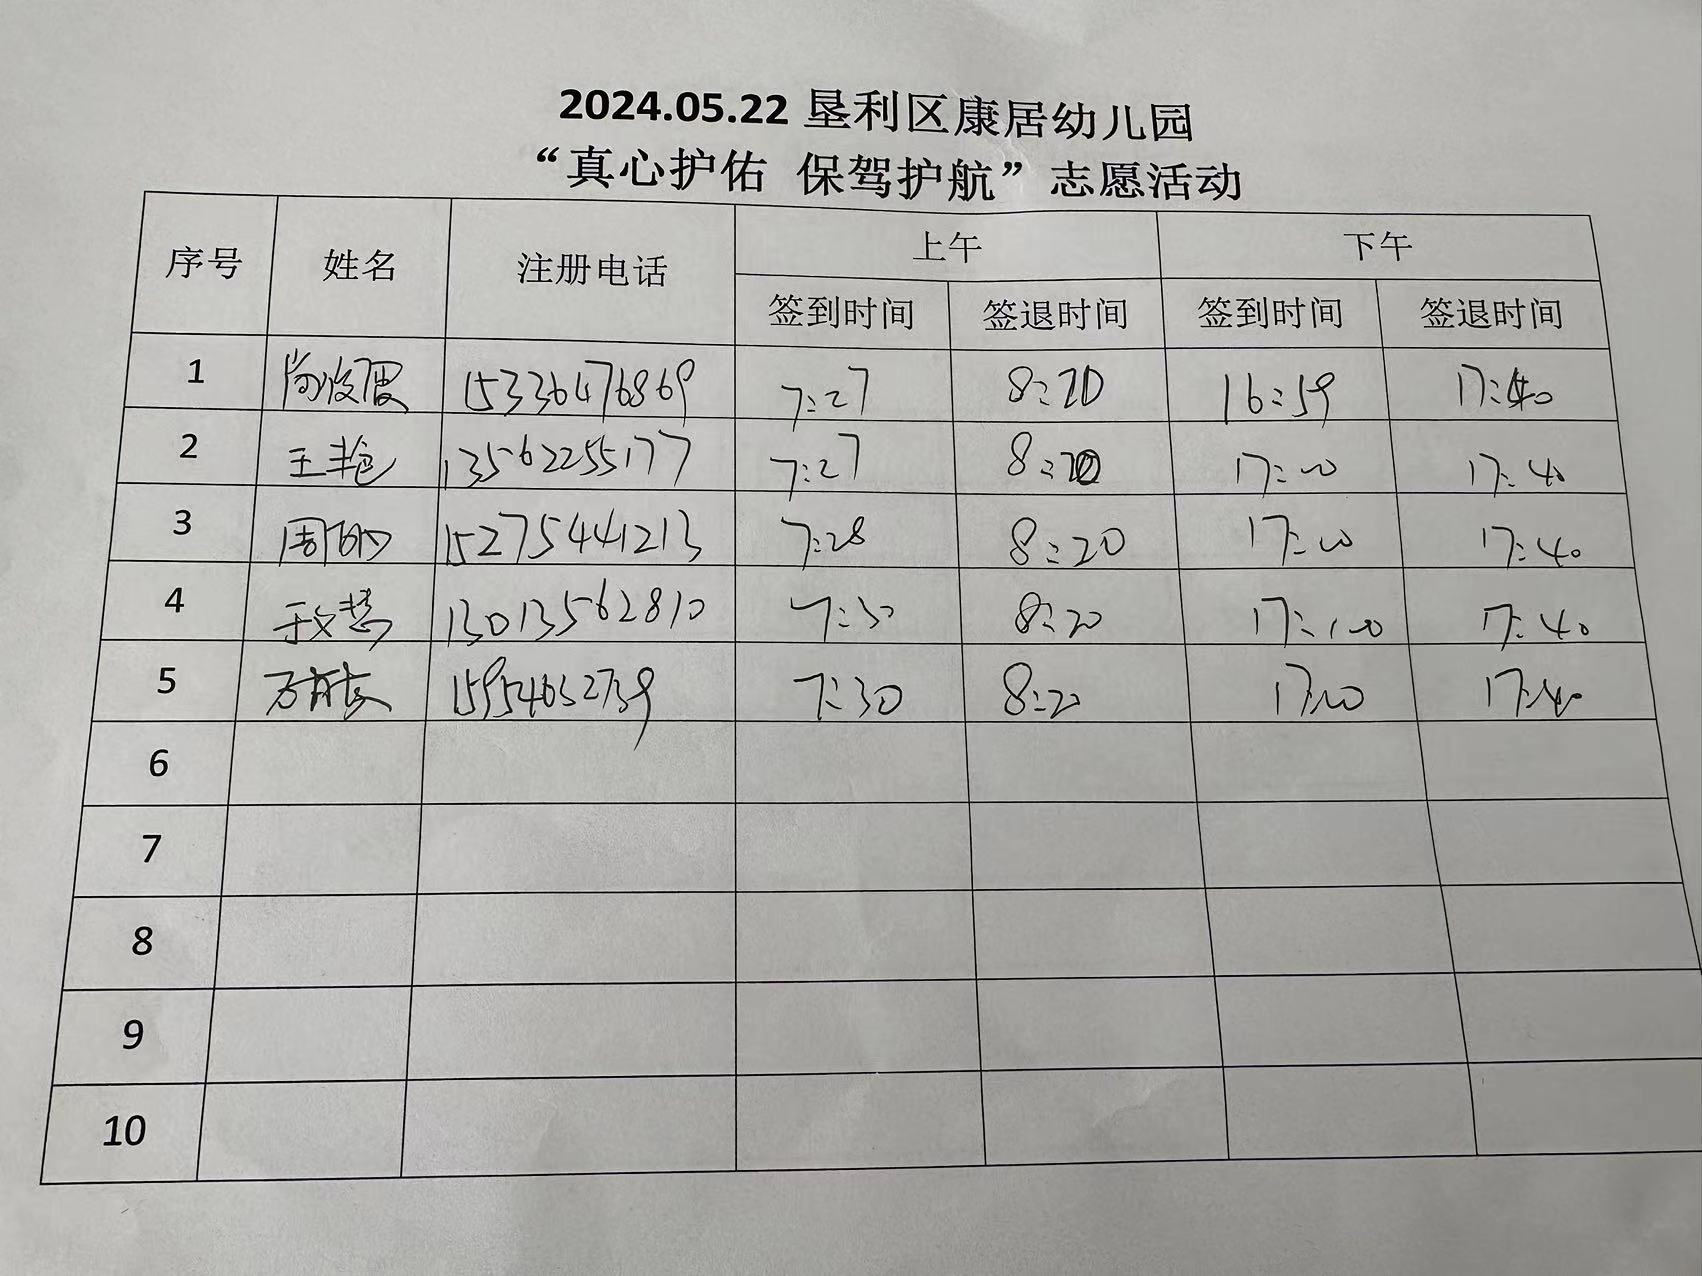 2024.05.22 垦利区康居幼儿园
“真心护佑 保驾护航”志愿活动
序号 姓名 注册电话 上午 下午
签到时间 签退时间 签到时间 签退时间
1 15336476869 7:27 8:20 16:59 17:40
2 王艳 13562255177 7:27 8:20 17:00 17:40
3 周 15275441213 7:28 8:20 17:00 17:40
4 于文慧 13013562810 7:30 8:20 17:00 17:40
5 15954632739 7:30 8:20 17:00 17:40
6
7
8
9
10